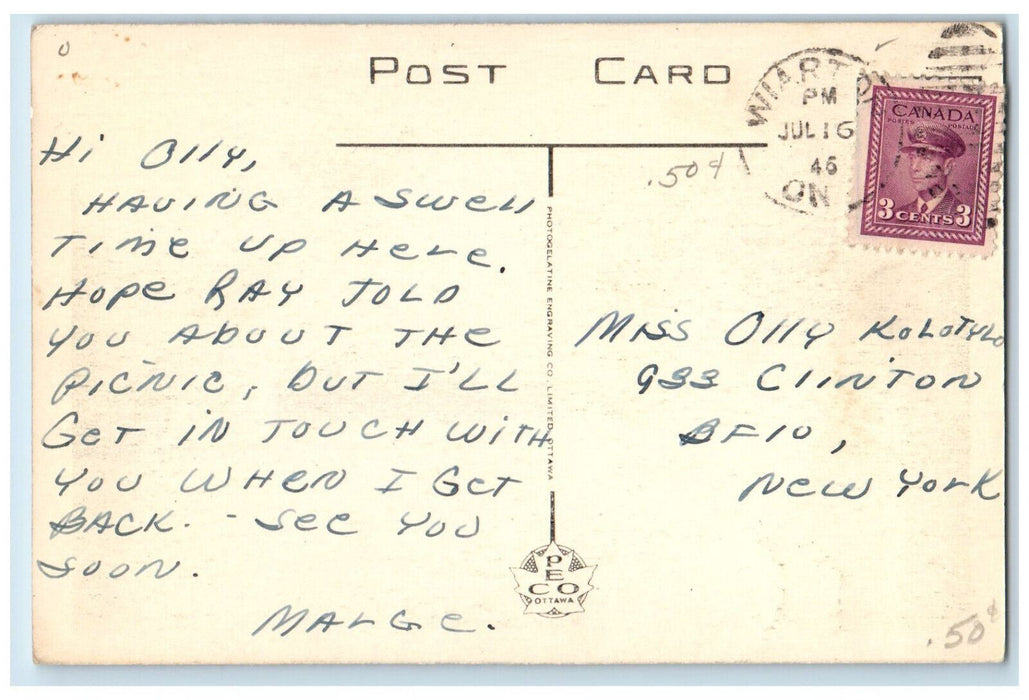 POST CARD
WIARTON
PM
JUL 16
46
ONT
CANADA
POSTES POSTAGE
3 CENTS 3
.50¢
Hi Olly,
HAVING A SWELL
TIME UP HERE.
HOPE RAY TOLD
YOU ABOUT THE
PICNIC, BUT I'LL
GET IN TOUCH WITH
YOU WHEN I GET
BACK. - SEE YOU
SOON.
MARGE.
PHOTOGELATINE ENGRAVING CO. LIMITED OTTAWA
MISS OLLY KOLOTYLO
933 CLINTON
BFLO,
NEW YORK
PECO
OTTAWA
.50¢